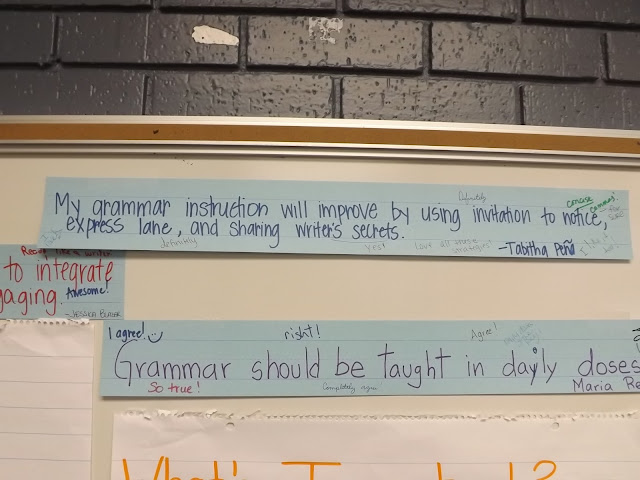 Definitely
concise
commas!
My grammar instruction will improve by using invitation to notice,
express lane, and sharing writer's secrets.
definitely
yes!
Love all these strategies!
-Tabitha Peña
Read like a writer
to integrate
gaging. Awesome!
-Jessica
I agree!
right!
Agree!
Grammar should be taught in dayly doses
So true!
Completely agree
Maria Re
What's